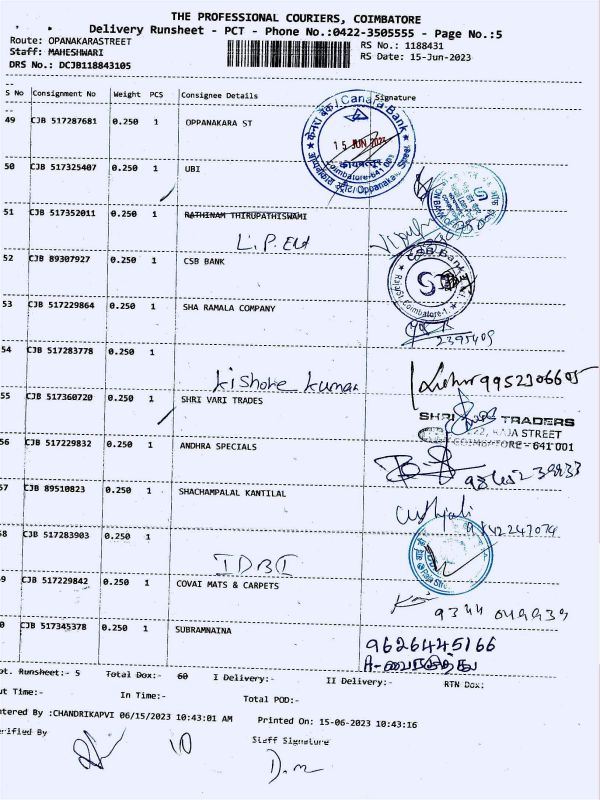 THE PROFESSIONAL COURIERS, COIMBATORE
Delivery Runsheet - PCT - Phone No.:0422-3505555 - Page No.:5
Route: OPANAKARASTREET
RS No.: 1188431
Staff: MAHESHWARI
RS Date: 15-Jun-2023
DRS No.: DCJB118843105
S No Consignment No Weight PCS Consignee Details Signature
49 CJB 517287681 0.250 1 OPPANAKARA ST
केनरा बैंक / Canara Bank
15 JUN 2023
कोयम्बत्तूर
Coimbatore-641 001
50 CJB 517325407 0.250 1 UBI
51 CJB 517352011 0.250 1 RATHINAM THIRUPATHISWAMI
L.P. Ext
52 CJB 89307927 0.250 1 CSB BANK
CSB Bank
53 CJB 517229864 0.250 1 SHA RAMALA COMPANY
2395409
54 CJB 517283778 0.250 1
Kishore Kumar
9952106605
55 CJB 517360720 0.250 1 SHRI VARI TRADES
SHRI TRADERS
22, RAJA STREET
COIMBATORE - 641 001
56 CJB 517229832 0.250 1 ANDHRA SPECIALS
57 CJB 89510823 0.250 1 SHACHAMPALAL KANTILAL
9842247074
58 CJB 517283903 0.250 1
IDBI
59 CJB 517229842 0.250 1 COVAI MATS & CARPETS
9344 049939
0 CJB 517345378 0.250 1 SUBRAMNAINA
9626445166
pt. Runsheet:- 5 Total Dox:- 60 I Delivery:- II Delivery:- RTN Dox:
ut Time:- In Time:- Total POD:-
ntered By :CHANDRIKAPVI 06/15/2023 10:43:01 AM Printed On: 15-06-2023 10:43:16
erified By
Staff Signature